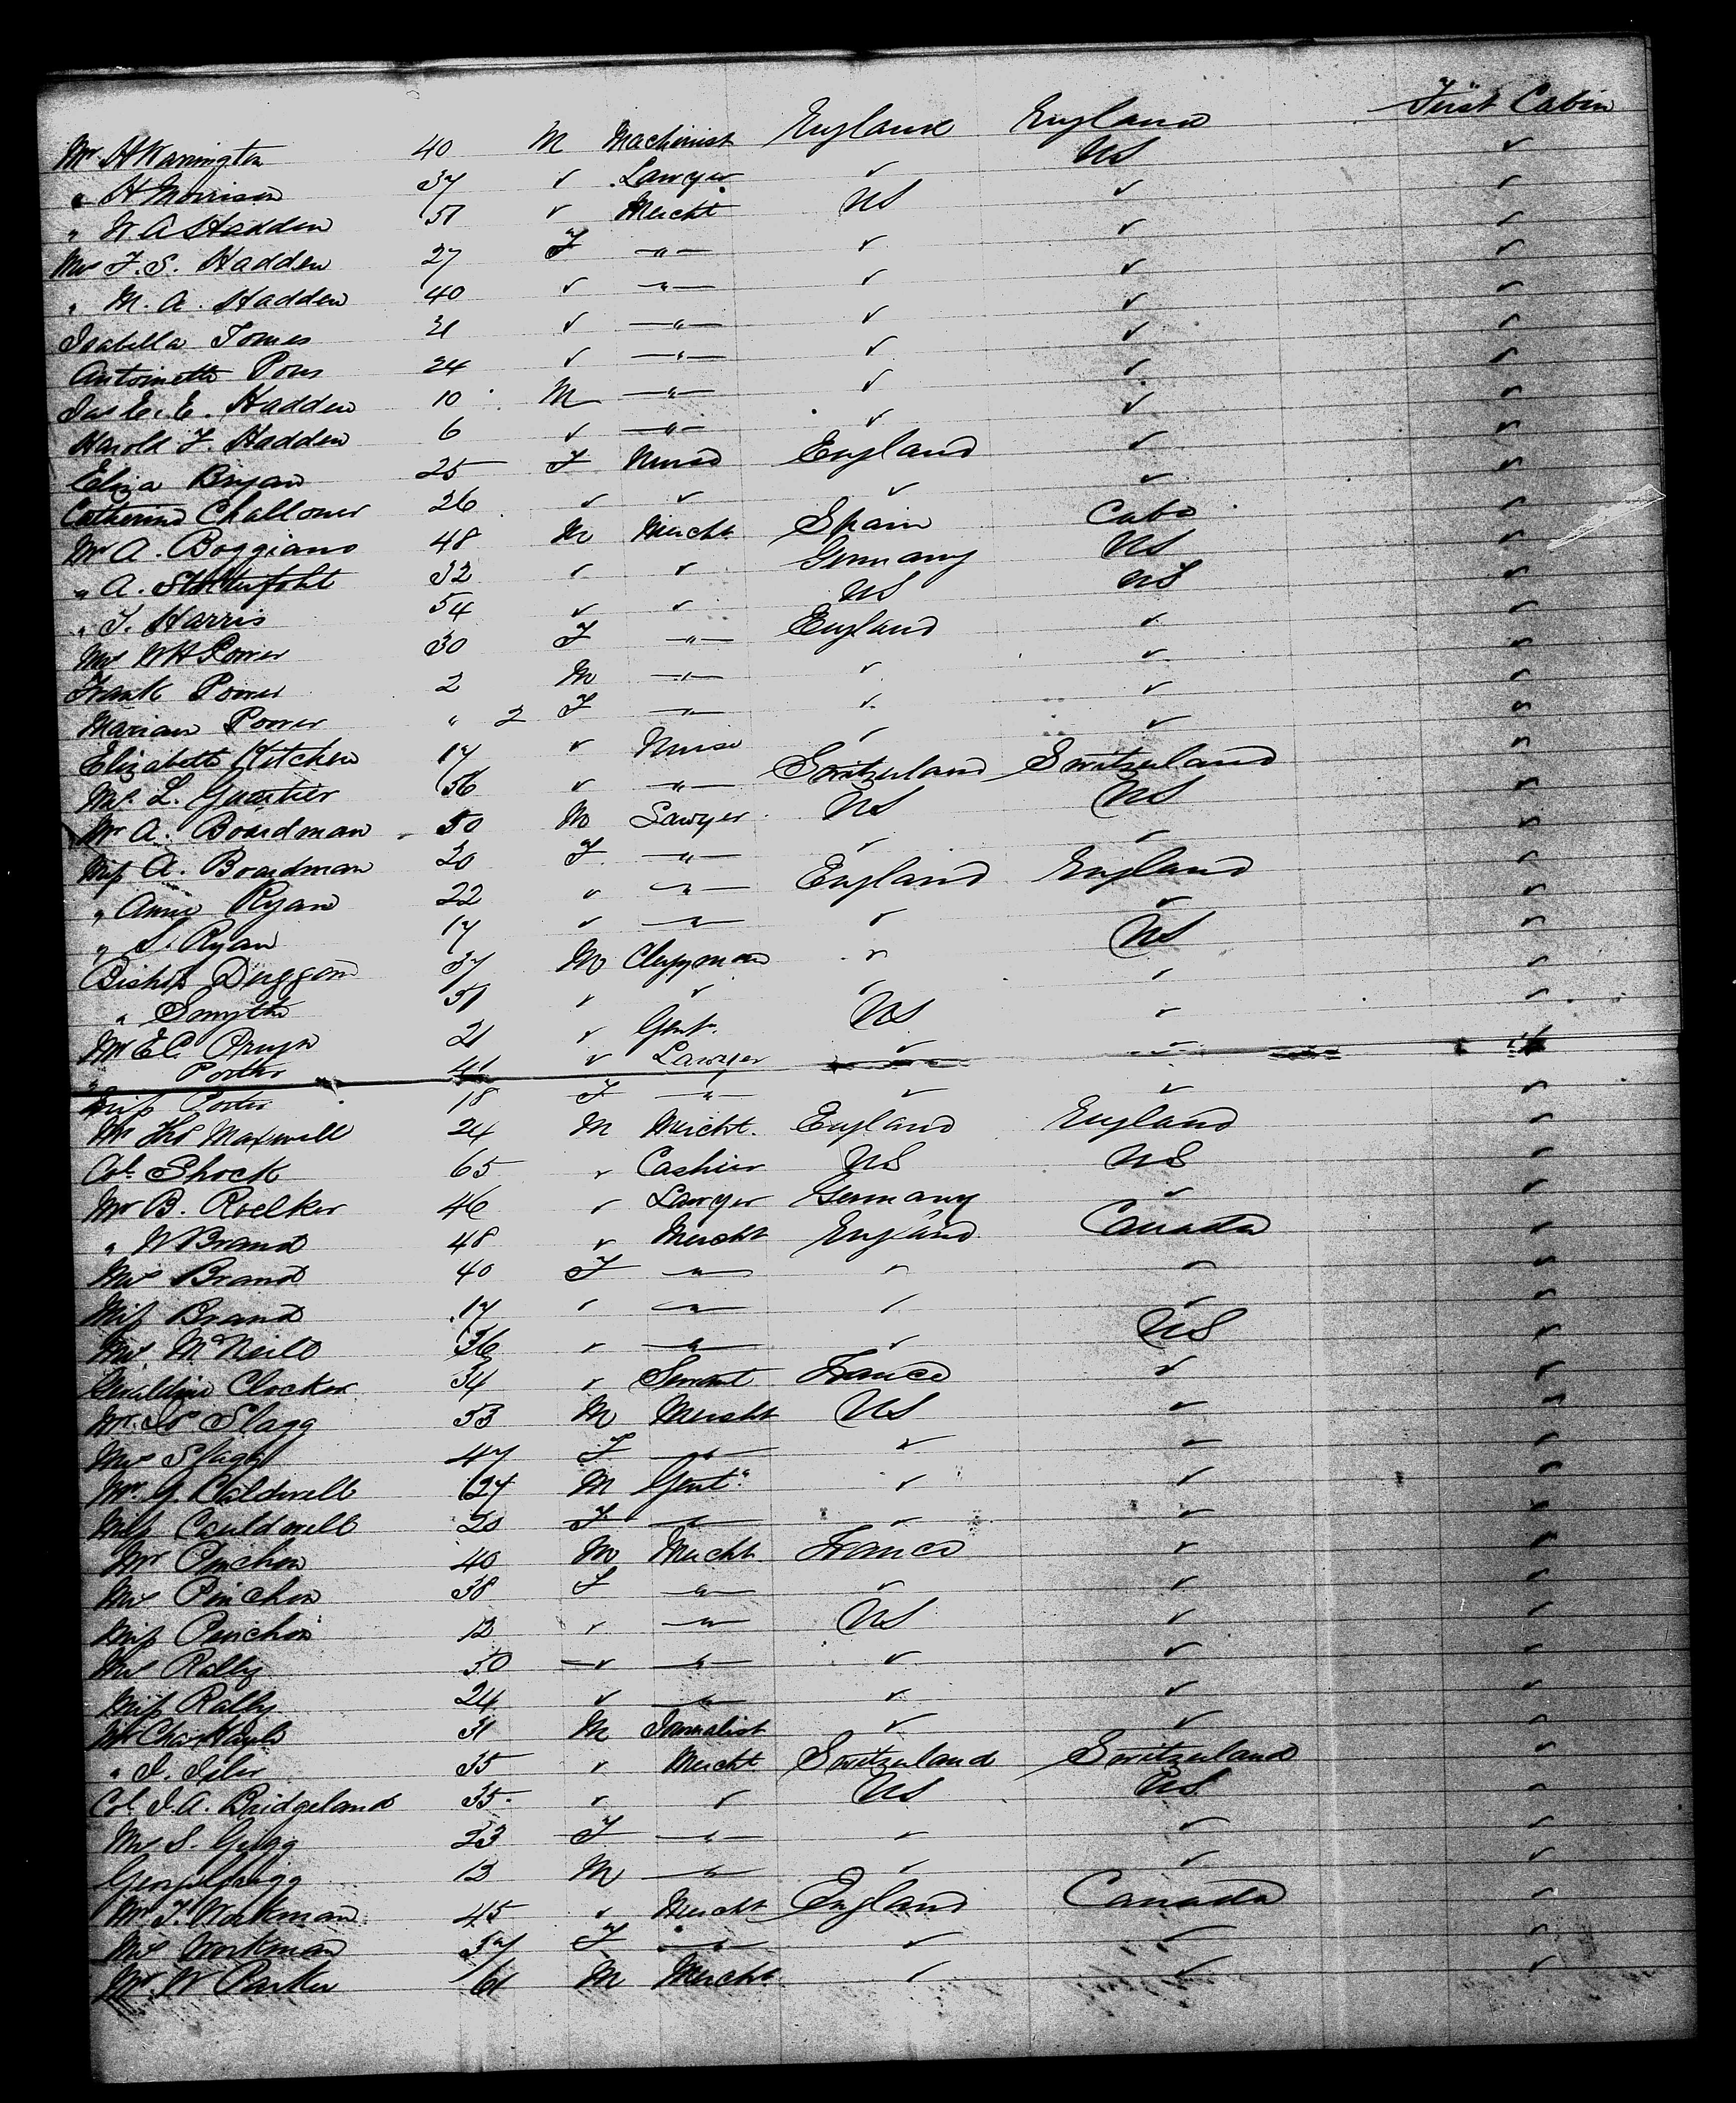 First Cabin
Mr H Warrington 40 M Machinist England England ✓
" H Morrison 37 ✓ Lawyer ✓ US ✓
" W. A Hadden 51 ✓ Mercht US ✓ ✓
Mrs F. S. Hadden 27 F —"— ✓ ✓ ✓
" M. A. Hadden 40 ✓ —"— ✓ ✓ ✓
Isabella Tomes 21 ✓ —"— ✓ ✓ ✓
Antoinette Pons 24 ✓ —"— ✓ ✓ ✓
Jas E. E. Hadden 10 M —"— ✓ ✓ ✓
Harold F. Hadden 6 ✓ —"— ✓ ✓ ✓
Eliza Bryan 25 F Nurse England ✓ ✓
Catherine Challoner 26 ✓ ✓ ✓ ✓ ✓
Mr A. Boggiano 48 M Mercht Spain Cuba ✓
" A. 32 ✓ ✓ Germany US ✓
" T. Harris 54 ✓ ✓ US US ✓
Mrs W H Power 30 F —"— England ✓ ✓
Frank Power 2 M —"— ✓ ✓ ✓
Marian Power " 2 F —"— ✓ ✓ ✓
Elizabeth Kitchen 17 ✓ Nurse ✓ ✓ ✓
Mrs L. Gautier 56 ✓ —"— Switzerland Switzerland ✓
Mr A. Boardman 50 M Lawyer US US ✓
Miss A. Boardman 20 F —"— ✓ ✓ ✓
" Anne Ryan 22 ✓ —"— England England ✓
" S. Ryan 17 ✓ —"— ✓ ✓ ✓
Bishop Duggan 37 M Clergyman ✓ US ✓
" Smyth 51 ✓ ✓ ✓ ✓ ✓
Mr E C Pruyn 21 ✓ Gent. US ✓ ✓
" Porter 41 ✓ Lawyer ✓ ✓ ✓
Miss Porter 18 F —"— ✓ ✓ ✓
Mr Thos Maxwell 24 M Mercht. England England ✓
Col. Shock 65 ✓ Cashier US US ✓
Mr B. Roelker 46 ✓ Lawyer Germany ✓ ✓
" W Brand 48 ✓ Mercht England Canada ✓
Mrs Brand 40 F —"— ✓ ✓ ✓
Miss Brand 17 ✓ —"— ✓ ✓ ✓
Mrs McNeill 36 ✓ —"— ✓ US ✓
Geraldine Clocker 34 ✓ Servant France ✓ ✓
Mr. Slagg 53 M Mercht US ✓ ✓
Mrs Slagg 47 F —"— ✓ ✓ ✓
Mr. G. Caldwell 24 M Gent. ✓ ✓ ✓
Miss Cauldwell 20 F —"— ✓ ✓ ✓
Mr Pinchon 40 M Mercht. France ✓ ✓
Mrs Pinchon 38 F —"— ✓ ✓ ✓
Miss Pinchon 12 ✓ —"— US ✓ ✓
Mrs Ralby 50 ✓ —"— ✓ ✓ ✓
Miss Ralby 24 ✓ —"— ✓ ✓ ✓
Mr Chas 31 M Journalist ✓ ✓ ✓
" J. Isler 35 ✓ Mercht Switzerland Switzerland ✓
Col. J. A. Bridgeland 35 ✓ ✓ US US ✓
Mrs S. Grigg 23 F —"— ✓ ✓ ✓
Geo Grigg 12 M —"— ✓ ✓ ✓
Mr T. Workman 45 ✓ Mercht England Canada ✓
Mrs Workman 37 F —"— ✓ ✓ ✓
Mr. W Parker 61 M Mercht ✓ ✓ ✓